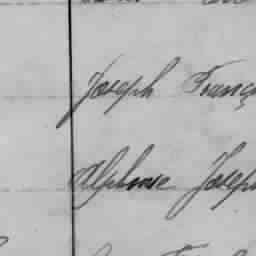 Joseph Franç
Alphonse Joseph